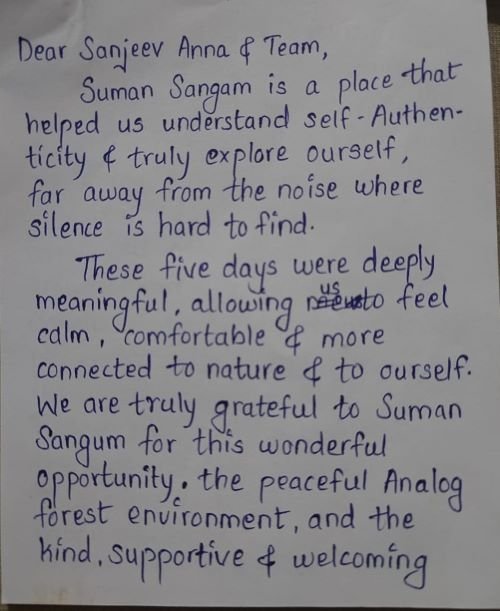 Dear Sanjeev Anna & Team,
Suman Sangam is a place that
helped us understand self-Authen-
ticity & truly explore ourself,
far away from the noise where
silence is hard to find.
These five days were deeply
meaningful, allowing us to feel
calm, comfortable & more
connected to nature & to ourself.
We are truly grateful to Suman
Sangum for this wonderful
opportunity. the peaceful Analog
forest environment, and the
kind, supportive & welcoming